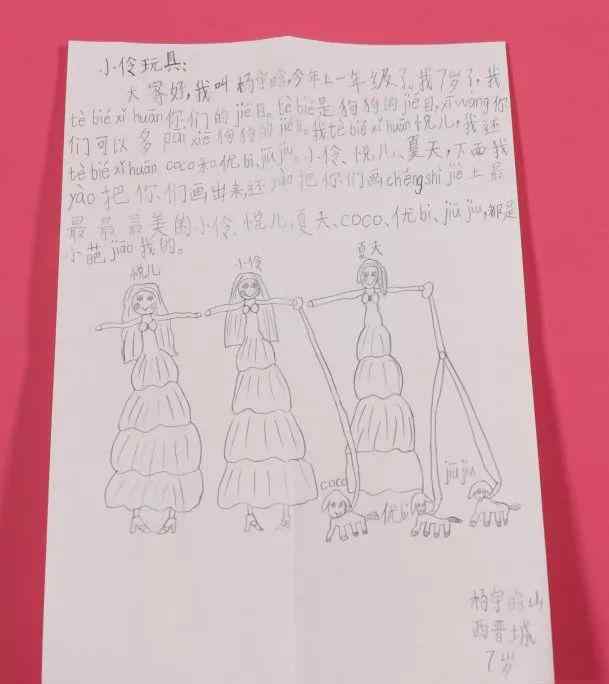 小伶玩具:
大家好,我叫杨宇晗,今年上一年级了。我7岁了,我
tè bié xǐ huān你们的jié目。tè bié是狗狗的jié目,xī wàng你
们可以多pāi xiē狗狗的jié目。我tè bié xǐ huān悦儿,我还
tè bié xǐ huān coco和优bi、jiū jiu。小伶、悦儿、夏天,下面我
yào把你们画出来,还yào把你们画chéng shì jiè上最
最最最美的小伶、悦儿、夏天、coco、优bi、jiū jiu,都是
小葩jiāo我的。
悦儿
小伶
夏天
coco
优bi
jiū jiu
杨宇晗山
西晋城
7岁